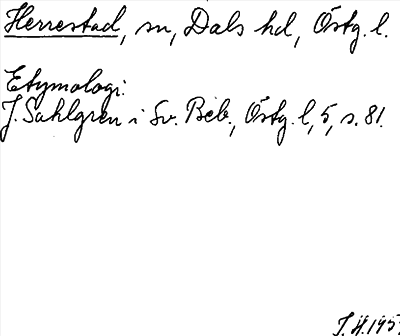 Herrestad, sn, Dals hd, Östg. l.
Etymologi:
J. Sahlgren i Sv. Beb., Östg. l, 5, s. 81.
J. H. 195